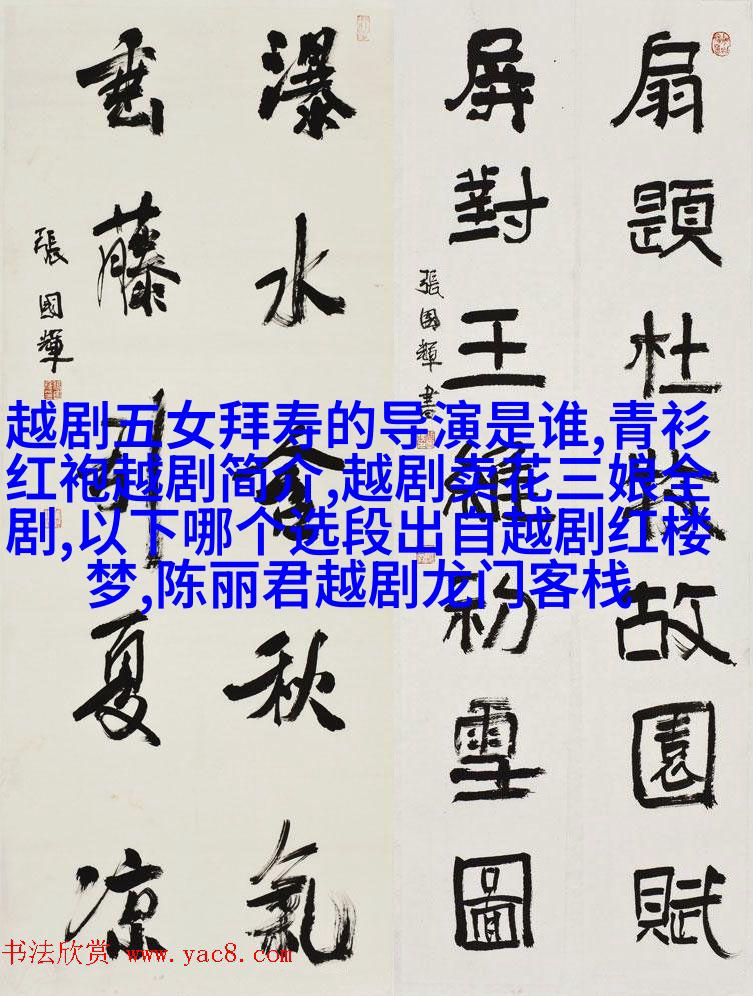 扇題杜牧故園賦
屏對王維初雪圖
張國輝書
瀑水含秋氣
垂藤引夏凉
張國輝
越剧五女拜寿的导演是谁,青衫
红袍越剧简介,越剧卖花三娘全
剧,以下哪个选段出自越剧红楼
梦,陈丽君越剧龙门客栈
书法欣赏 www.yac8.com